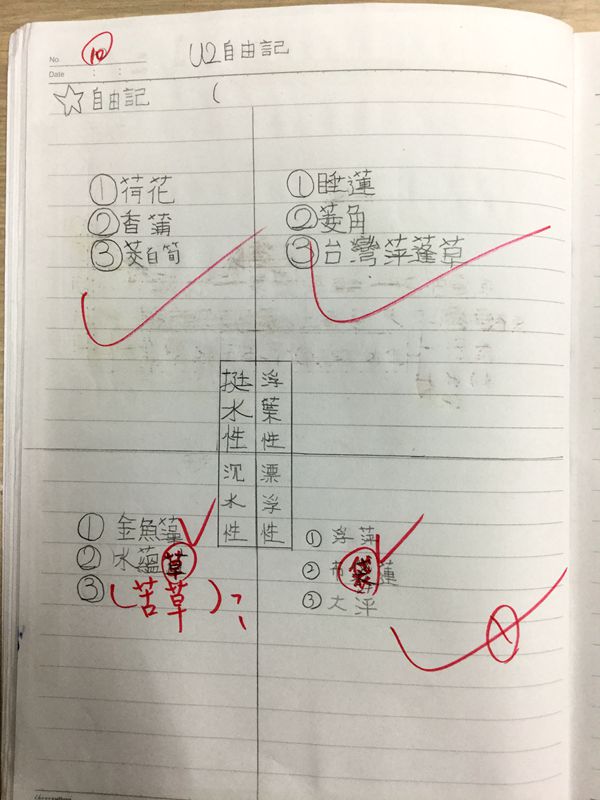 No.
10
Date : :
U2自由記
☆自由記 (
①荷花
②香蒲
③茭白筍
①睡蓮
②菱角
③台灣萍蓬草
挺水性
浮葉性
沉水性
漂浮性
①金魚藻
②水蘊草
③(苦草)?
①浮萍
②布袋蓮
③大萍